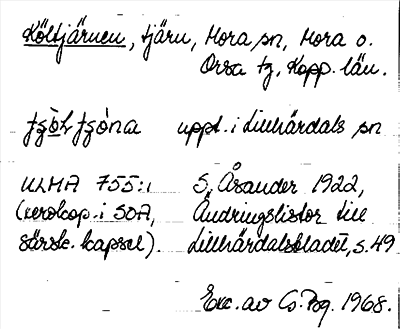 Költjärnen, tjärn, Mora sn, Mora o.
Orsa tg, Kopp. län.
uppt. i Lillhärdals sn
ULMA 755:1 S. Åsander 1922,
(xerokop. i SOA, Ändringslistor till
särsk. kapsel). Lillhärdalsbladet, s. 49
Exc. av 1968.